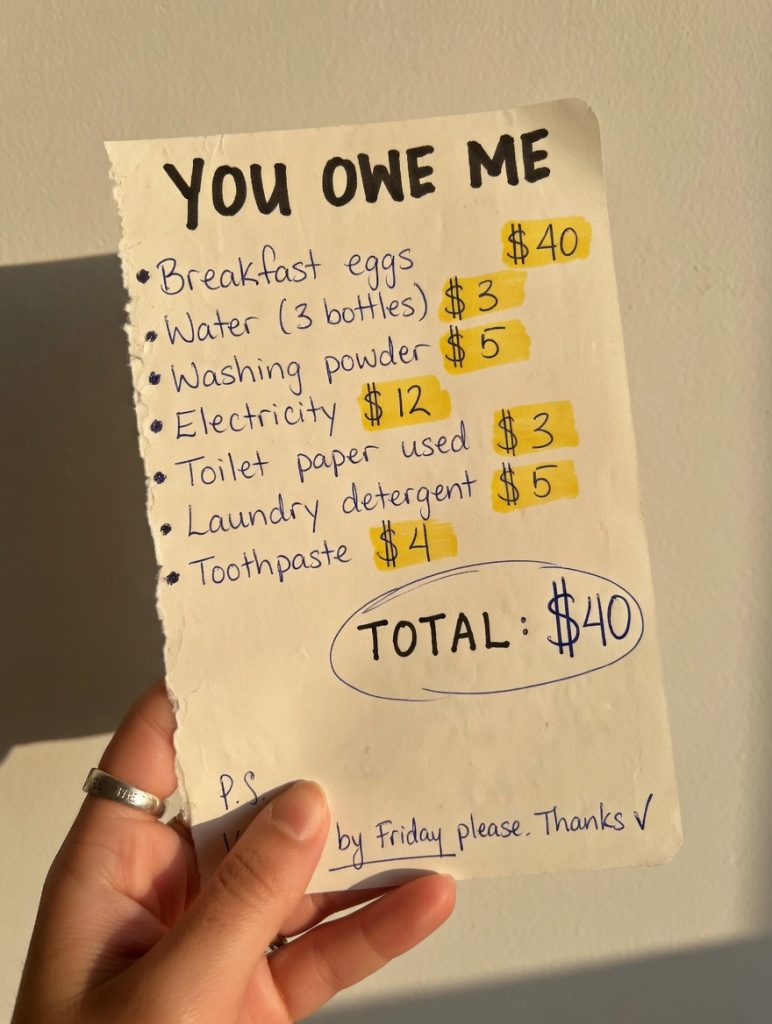 YOU OWE ME
• Breakfast eggs $40
• Water (3 bottles) $3
• Washing powder $5
• Electricity $12
• Toilet paper used $3
• Laundry detergent $5
• Toothpaste $4
TOTAL: $40
P.S.
by Friday please. Thanks ✓